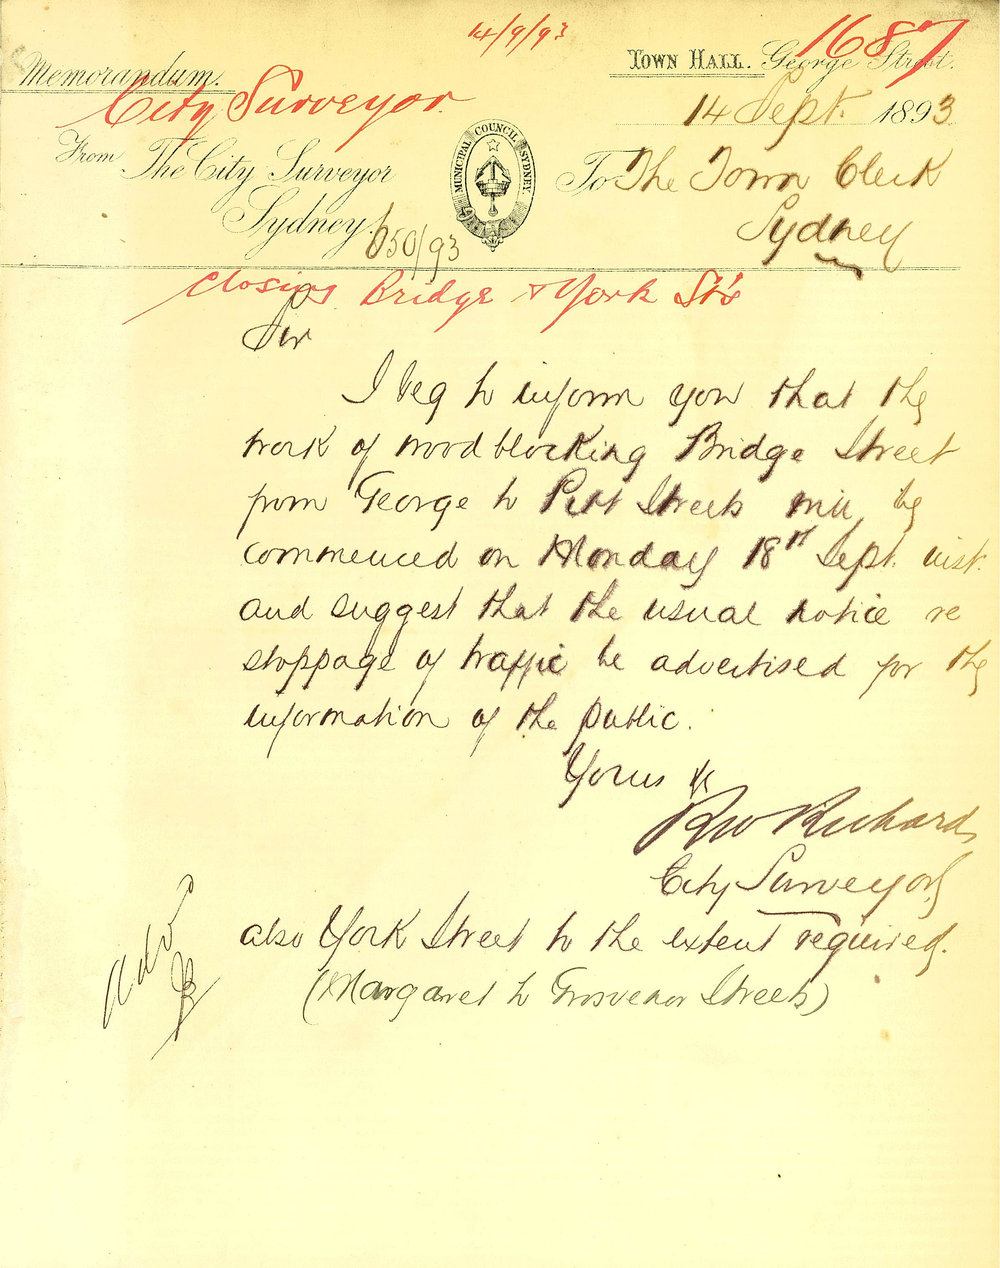 14/9/93
1687
Memorandum.
TOWN HALL. George Street.
City Surveyor
14 Sept. 1893
From The City Surveyor
Sydney.
MUNICIPAL COUNCIL SYDNEY.
To The Town Clerk
Sydney
650/93
Closing Bridge & York Sts
Sir
I beg to inform you that the
work of woodblocking Bridge Street
from George to Pitt Streets will be
commenced on Monday 18th Sept. inst.
and suggest that the usual notice re
stoppage of traffic be advertised for the
information of the public.
Yours &c
RW Richards
City Surveyor
also York Street to the extent required.
(Margaret to Grosvenor Streets)